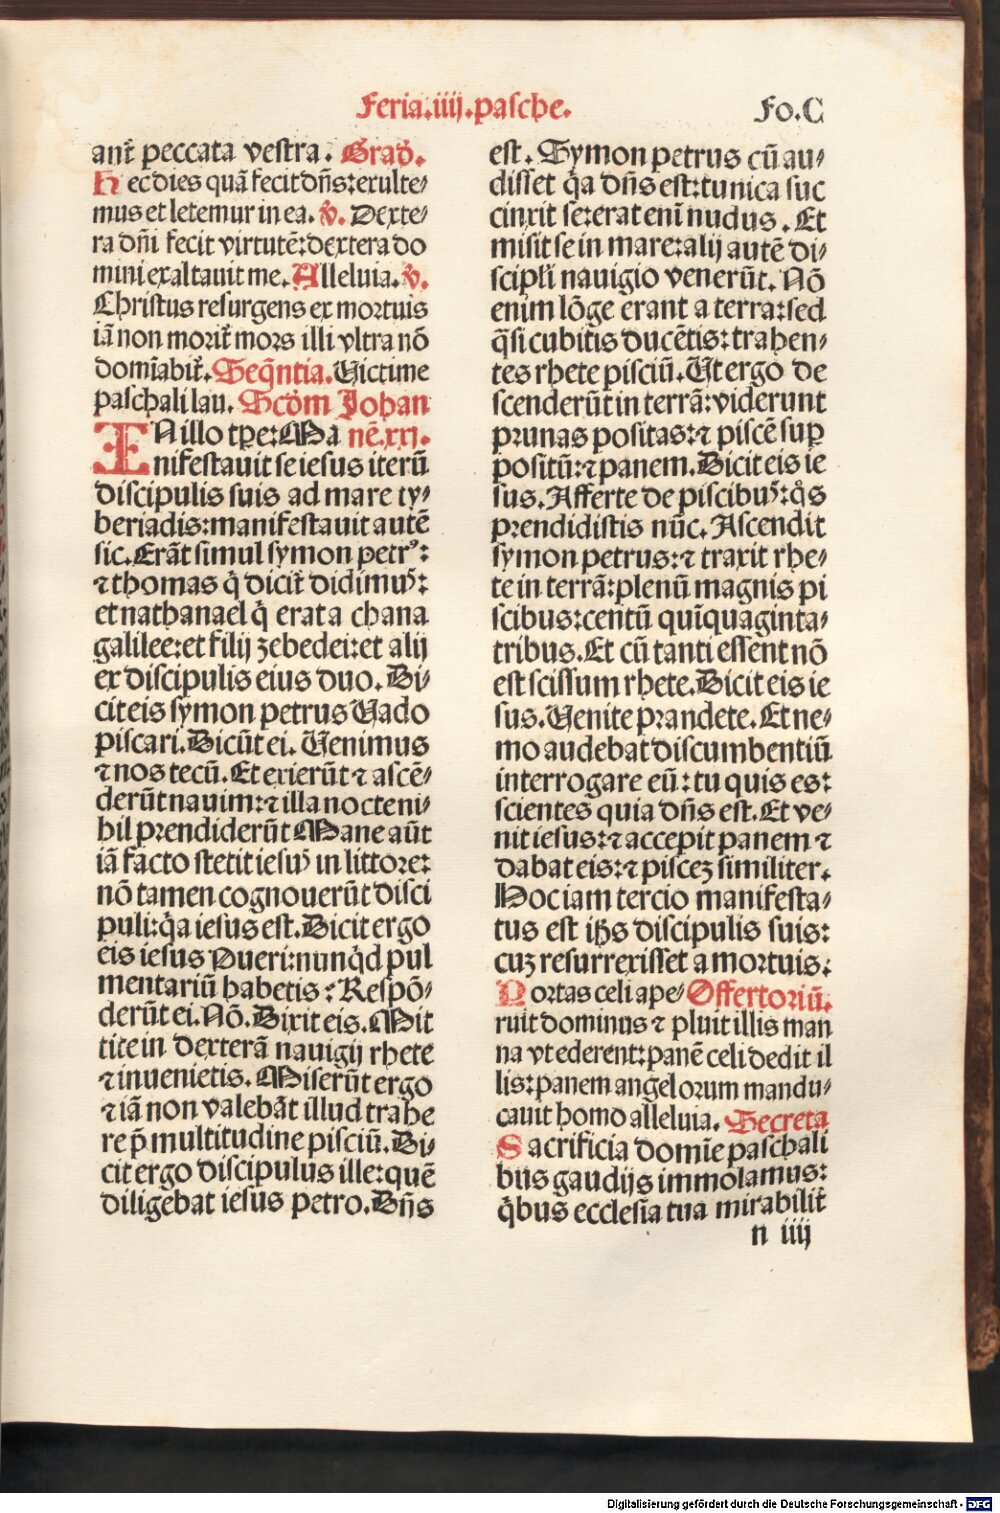 Feria.iiij.pasche.
Fo.C
ant̄ peccata vestra. Grad̄.
Hec dies quā fecit dn̄s: exulte⸗
mus et letemur in ea. v̄. Dexte⸗
ra dn̄i fecit virtutē: dextera do
mini exaltauit me. Alleluia. v̄.
Christus resurgens ex mortuis
iā non morit̄ mors illi vltra nō
domīabit̄. Seq̄ntia. Uictime
paschali lau. Scd̄m Johan
IN illo tꝑe: Ma nē.xxj.
nifestauit se iesus iterū
discipulis suis ad mare ty⸗
beriadis: manifestauit autē
sic. Erāt simul symon petrꝰ:
⁊ thomas q̄ dicit̄ didimuꝰ:
et nathanael q̄ erat a chana
galilee: et filij zebedei: et alij
ex discipulis eius duo. Di⸗
cit eis symon petrus Uado
piscari. Dicūt ei. Uenimus
⁊ nos tecū. Et exierūt ⁊ ascē⸗
derūt nauim: ⁊ illa nocte ni⸗
hil prendiderūt Mane aūt
iā facto stetit iesuꝰ in littore:
nō tamen cognouerūt disci
puli: q̄a iesus est. Dicit ergo
eis iesus Pueri: nunq̄d pul
mentariū habetis: Respō⸗
derūt ei. Nō. Dixit eis. Mit
tite in dexterā nauigij rhete
⁊ inuenietis. Miserūt ergo
⁊ iā non valebāt illud trahe
re p̄ multitudine pisciū. Di⸗
cit ergo discipulus ille: quē
diligebat iesus petro. Dn̄s
est. Symon petrus cū au⸗
disset q̄a dn̄s est: tunica suc
cinxit se: erat enī nudus. Et
misit se in mare: alij autē di⸗
scipl̄i nauigio venerūt. Nō
enim lōge erant a terra: sed
q̄si cubitis ducētis: trahen⸗
tes rhete pisciū. Ut ergo de
scenderūt in terrā: viderunt
prunas positas: ⁊ piscē suꝑ
positū: ⁊ panem. Dicit eis ie
sus. Afferte de piscibuꝰ: q̄s
prendidistis nūc. Ascendit
symon petrus: ⁊ traxit rhe⸗
te in terrā: plenū magnis pi
scibus: centū quīquaginta⸗
tribus. Et cū tanti essent nō
est scissum rhete. Dicit eis ie
sus. Uenite prandete. Et ne⸗
mo audebat discumbentiū
interrogare eū: tu quis es:
scientes quia dn̄s est. Et ve⸗
nit iesus: ⁊ accepit panem ⁊
dabat eis: ⁊ piscez similiter.
Hoc iam tercio manifesta⸗
tus est ih̄s discipulis suis:
cuz resurrexisset a mortuis:
Portas celi ape⸗ Offertoriū.
ruit dominus ⁊ pluit illis man
na vt ederent: panē celi dedit il
lis: panem angelorum mandu⸗
cauit homo alleluia. Secreta
Sacrificia domīe paschali
bus gaudijs immolamus:
q̄bus ecclesia tua mirabilit̄
n iiij
Digitalisierung gefördert durch die Deutsche Forschungsgemeinschaft - DFG